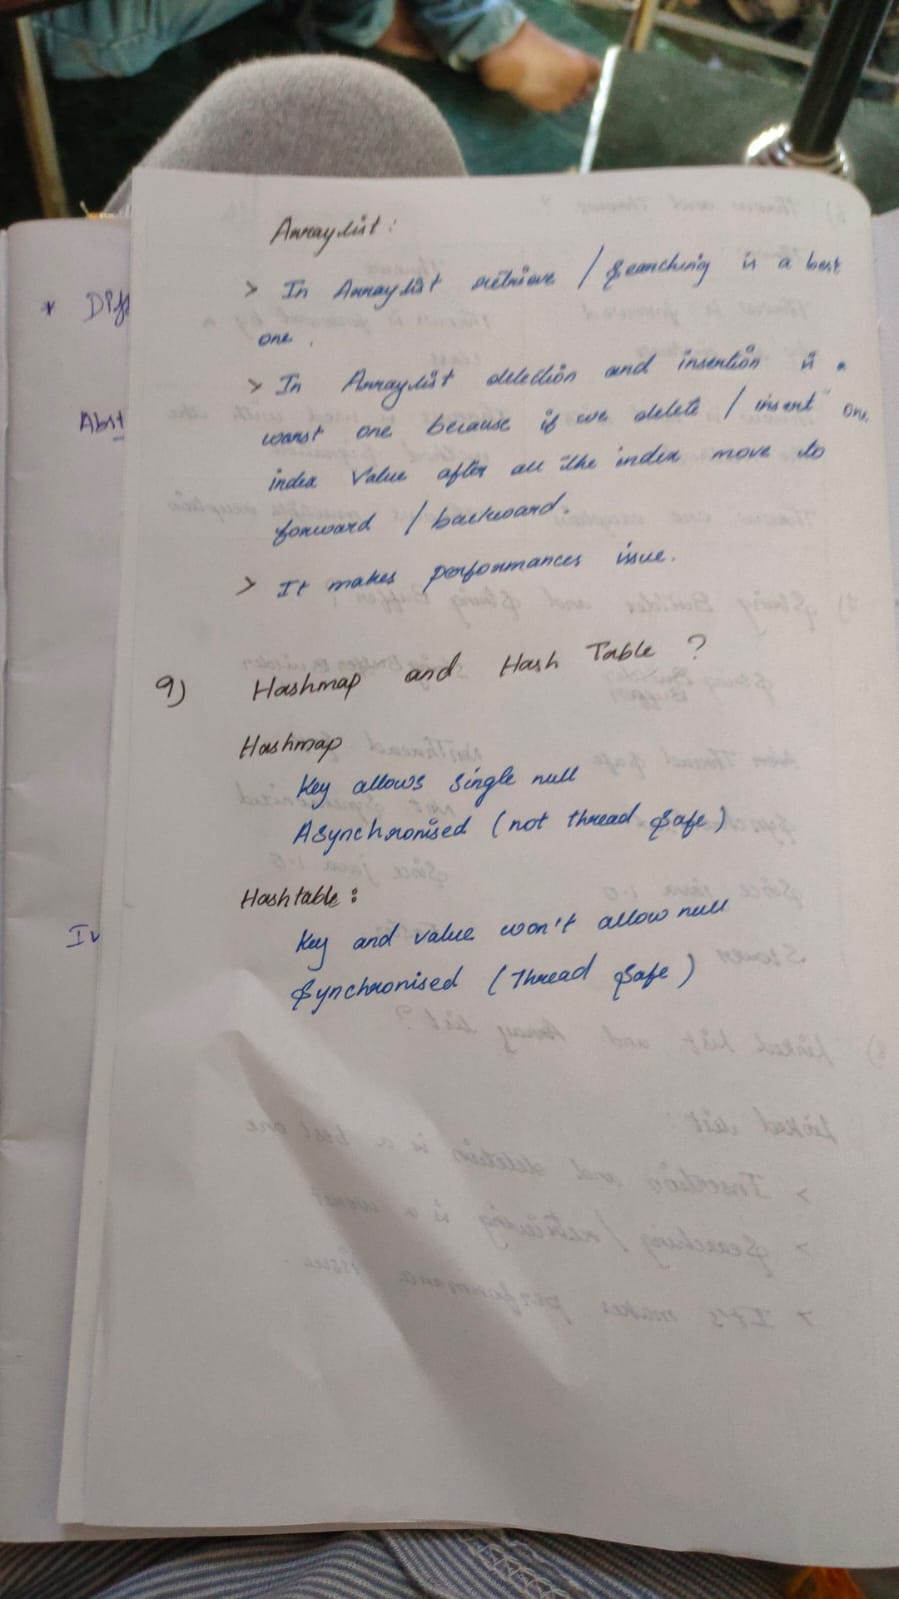 ArrayList:
> In ArrayList retrieve / Searching is a best
one.
> In ArrayList deletion and insertion is a
worst one because if we delete / insert one
index Value after all the index move to
forward / backward.
> It makes performances issue.
9) Hashmap and Hash Table ?
Hashmap
Key allows single null
Asynchronised (not thread safe)
Hashtable:
Key and value won't allow null
Synchronised (Thread Safe)
* Diff
Abst